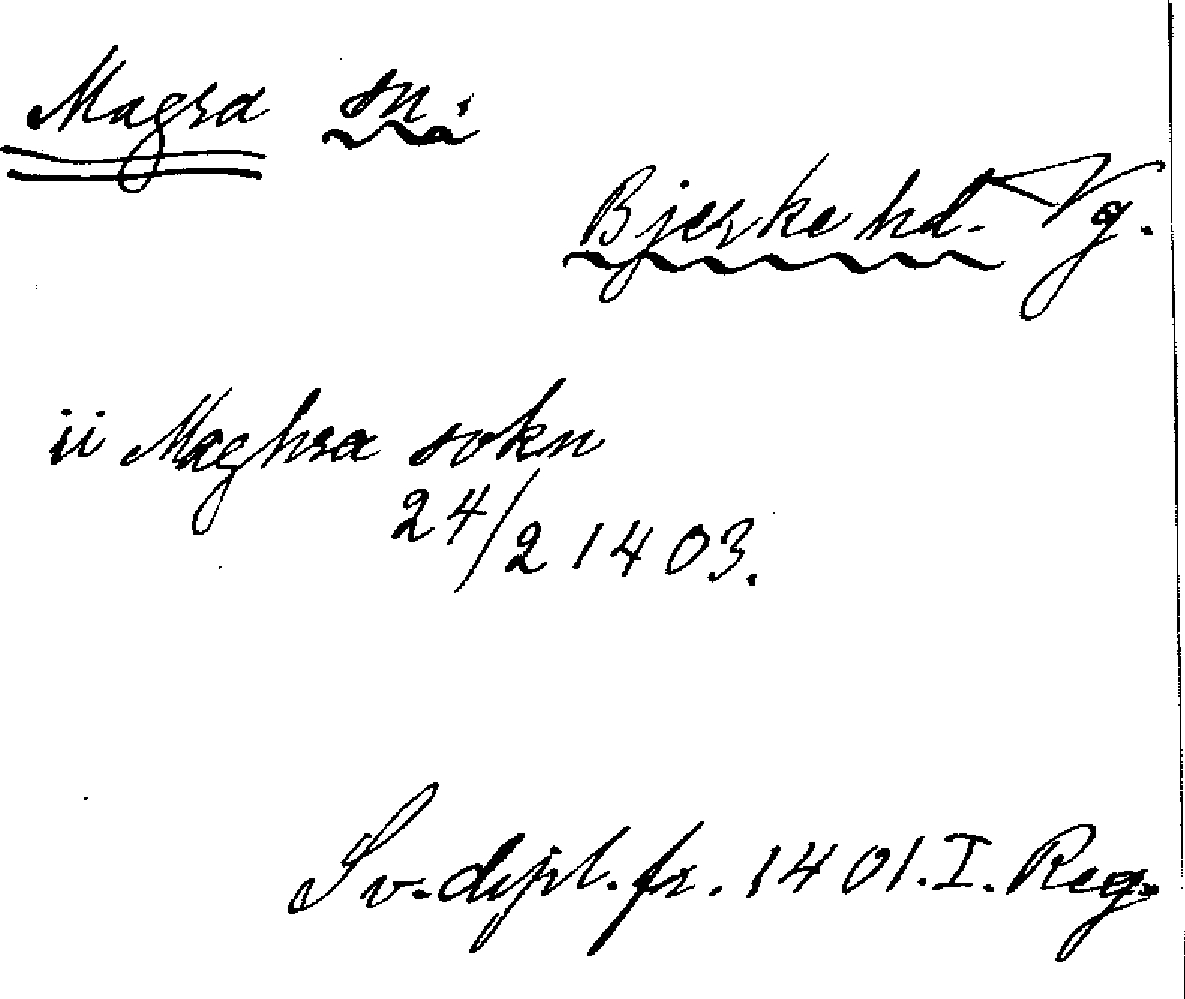 Magra sn.
Bjerke hd. Vg.
ii Maghra sokn
24/2 1403.
Sv. dipl. fr. 1401. I. Reg.